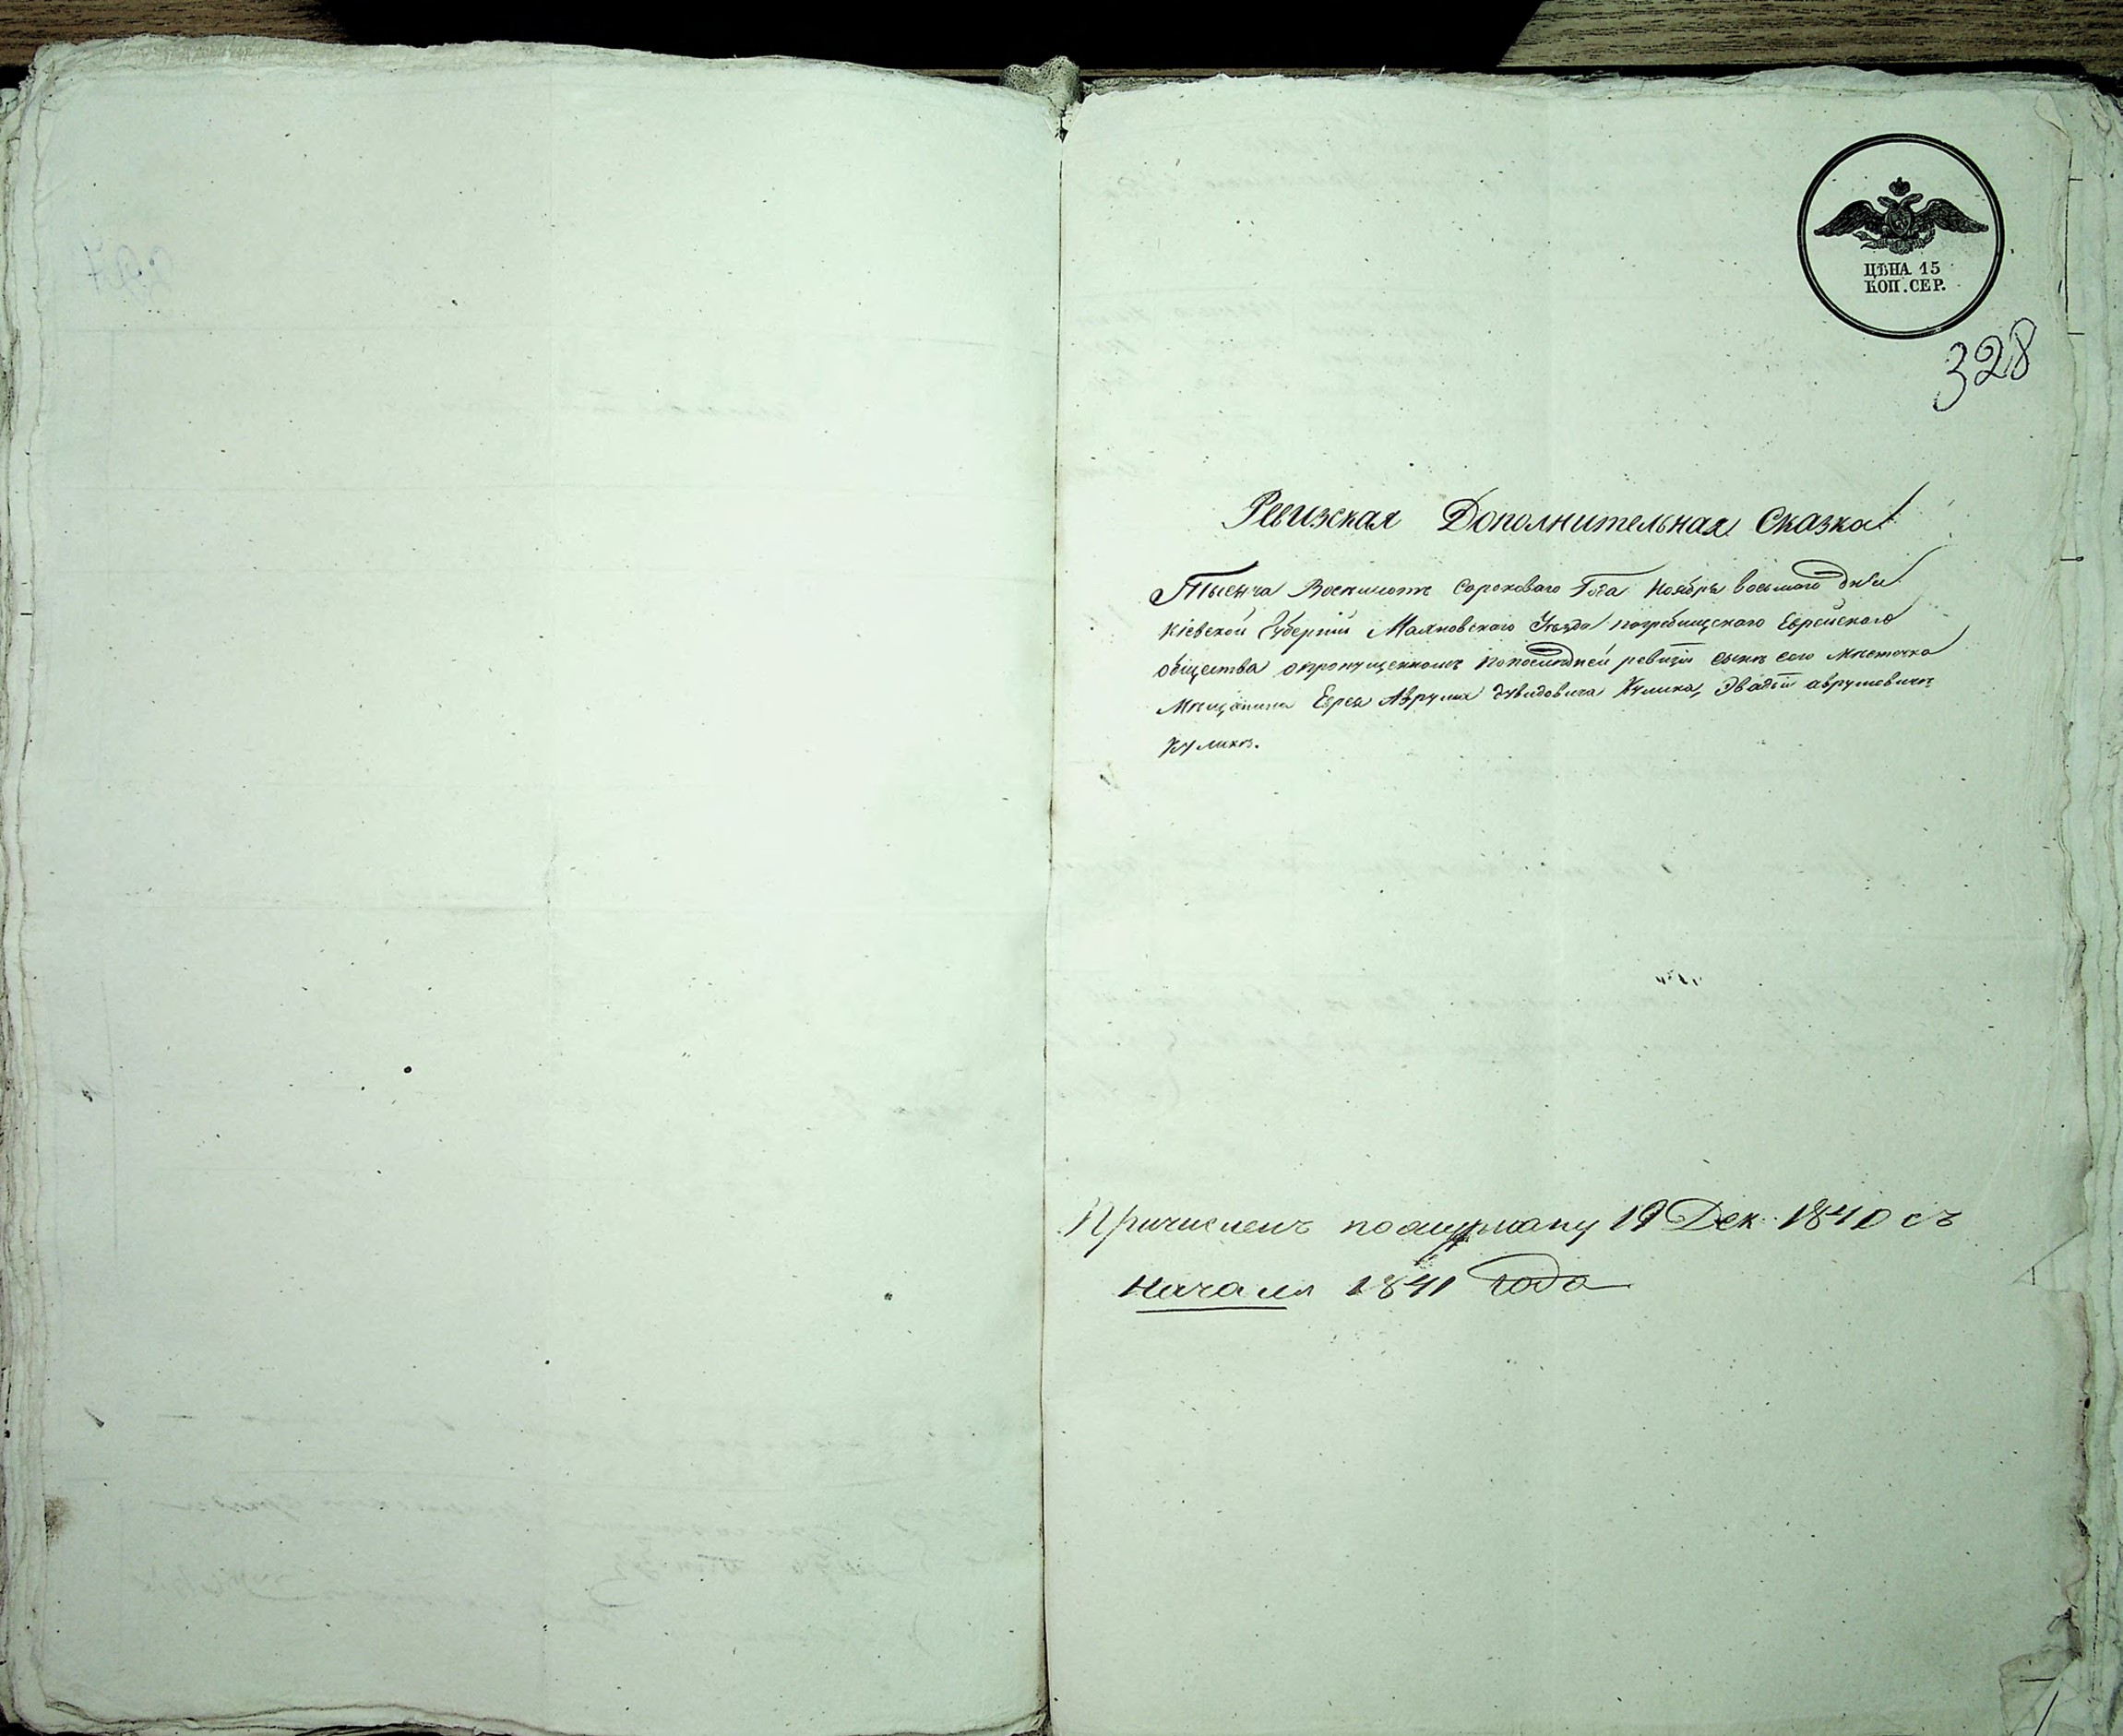 ЦѢНА 15
КОП. СЕР.
328
Ревизская Дополнительная Сказка
Тысяча Восемьсотъ Сороковаго Года Ноября восьмаго дня
Кіевской Губерніи Махновскаго Уѣзда погребищскаго Еврейскаго
общества опропущенномъ попослѣдней ревизіи сынѣ сего Мѣстечка
Мѣщанина Еврея Аврума дувидовича Кулика, аврумовичѣ
Куликѣ.
Причисленъ 19 Дек. 1840 съ
Начала 1841 года